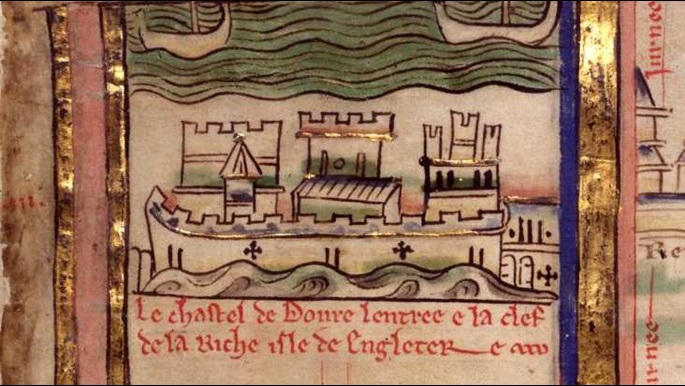 Le chastel de Dovre lentree e la clef
de la riche isle de Engleter e
Jurnee
Re
urnee